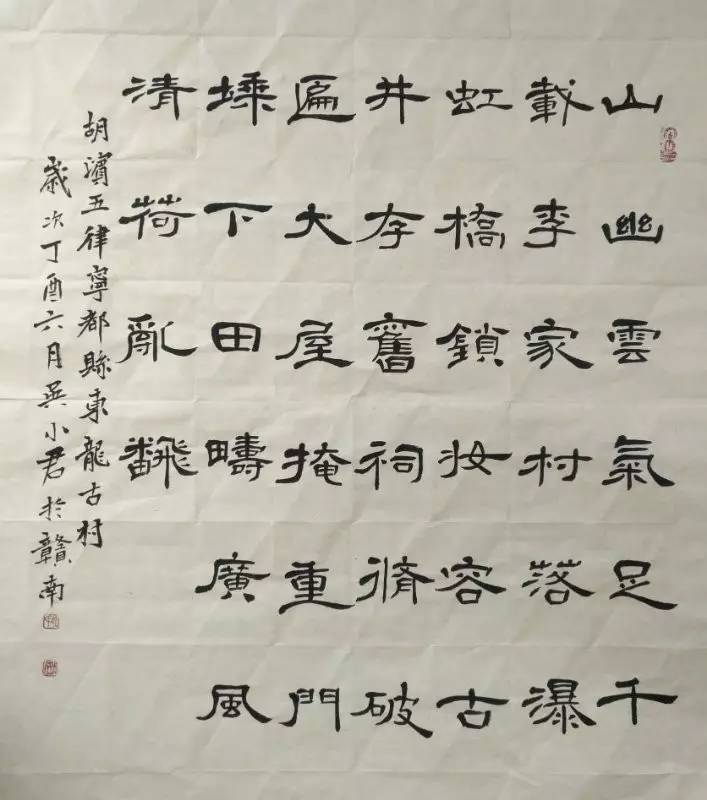 山幽雲氣足千
載李家村落瀑
虹橋鎖妆容古
井存舊祠脩破
遍大屋掩重門
塖下田疇廣風
清荷亂飜
胡濱五律寧都縣東龍古村
歲次丁酉六月吳小君於贛南